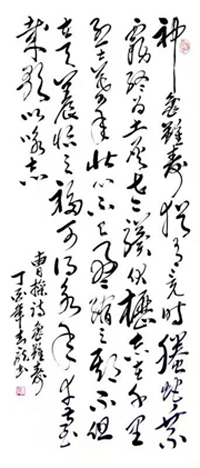 神龜雖壽猶有竟時騰蛇乘
霧終為土灰老驥伏櫪志在千里
烈士暮年壯心不已盈縮之期不但
在天養怡之福可得永年幸甚至
哉歌以詠志
曹操詩龜雖壽
丁酉年書